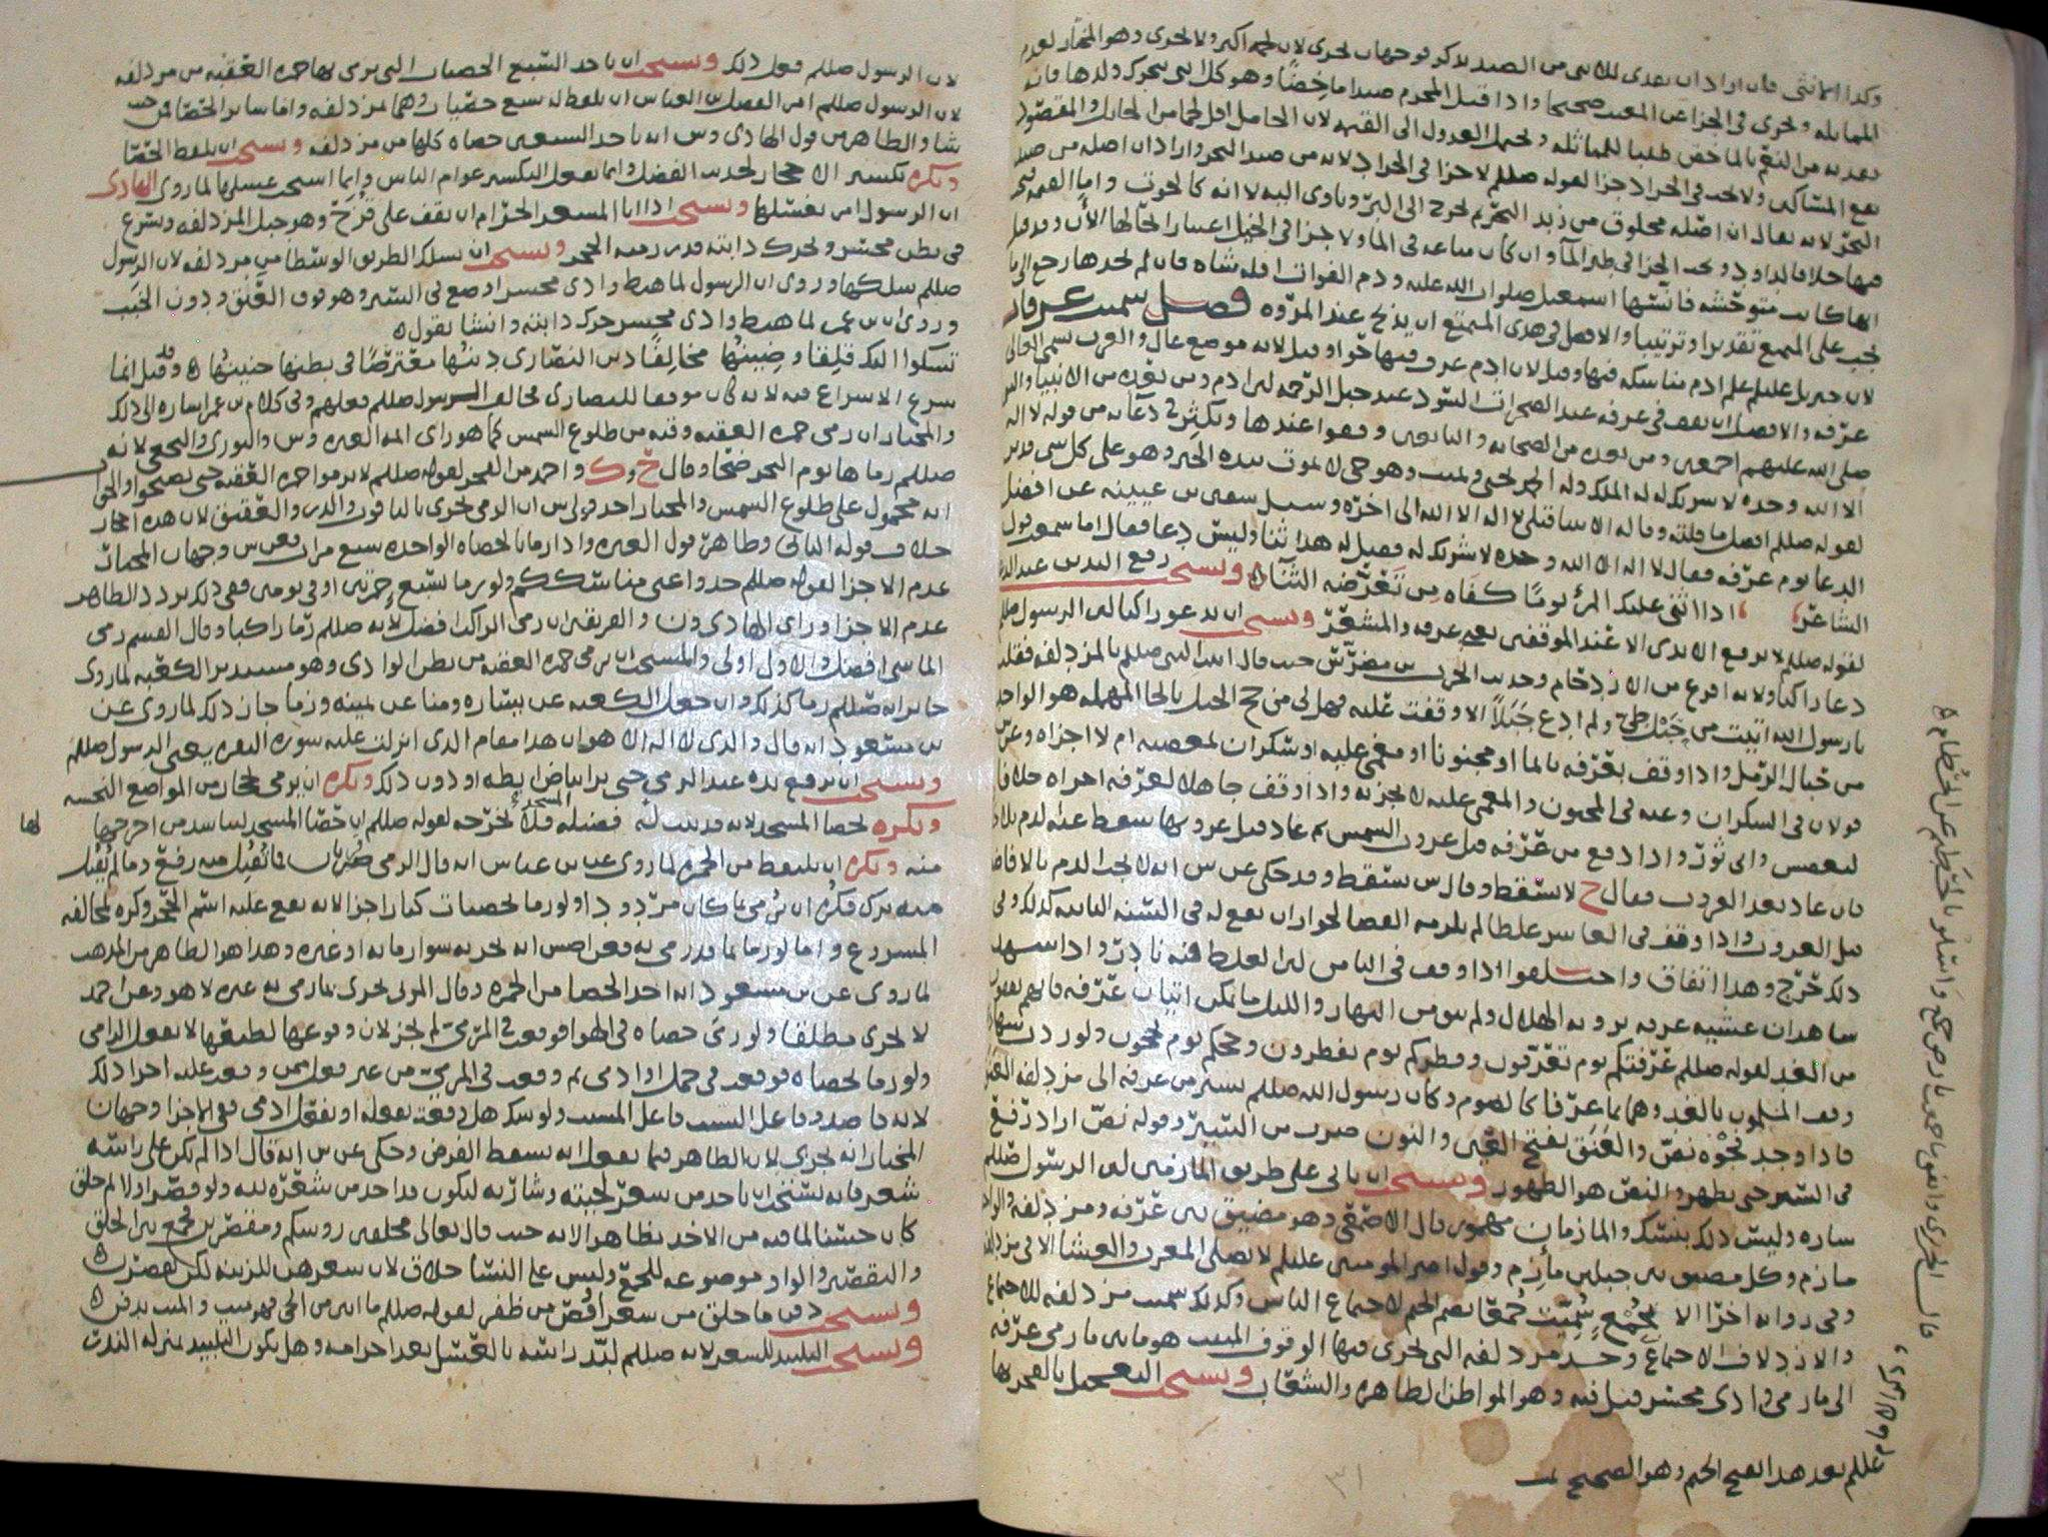 وكذا الانثى فان اراد ان يفدى للانثى من الصيد بذكر فوجهان يجزى لان لحمه اكبر ولا يجزى وهو المختار لعدم
المماثله ويجزى فى الجزا عن المعيب صحيحا واذا قتل المحرم صيدا ماخضا وهو كل انثى يتحرك ولدها فانه
يفديه من النعم بالماخض طلبا للمماثله ويحتمل العدول الى القيمه لان الحامل اقل لحما من الحايل والمقصود
نفع المساكين ولا يجب فى الجراد جزا لقوله صللم لا جزا فى الجراد لانه من صيد البحر واراد ان اصله من صيد
البحر لانه يقال ان اصله مخلوق من زبد البحر ثم يخرج الى البر وياوى اليه لا انه كالحوت
فيها خلافا لداود ويجب الجزا فى طير الماء وان كان ساعه فى الما ولا جزا فى الخيل اعتبارا لحالها الان وقد قيل
انها كانت متوحشه فانسها اسمعيل صلوات الله عليه ودم الفوات اقله شاه فان لم يجدها رجع الى ما
يجب على المتمتع تقديرا وترتيبا والافضل فى هدى المتمتع ان يذبح عند المروه فصل سميت عرفات
لان جبريل عليلم علم ادم مناسكه فيها وقيل لان ادم عرف فيها حوا وقيل لانه موضع عال والعرب تسمى العالى
عرفه والافضل ان يقف فى عرفه عند الصخرات السود عند جبل الرحمه لان ادم ومن بعده من الانبيا
صلى الله عليهم اجمعين ومن بعده من الصحابه والتابعين وقفوا عندها ويكثر فى دعآئه من قوله لا اله
الا الله وحده لا شريك له له الملك وله الحمد يحيى ويميت وهو حى لا يموت بيده الخير وهو على كل شى قدير
لقوله صللم افضل ما قلته وقاله الانبيا قبلى لا اله الا الله الى اخره وسئل سفين بن عيينه عن افضل
الدعا يوم عرفه فقال لا اله الا الله وحده لا شريك له فقيل له هذا ثنا وليس دعا فقال اما سمعت قول
الشاعر اذا اثنى عليك المرؤ يوما كفاه من تعرضه الثنآ ويستحب رفع اليدين عند الدعا
لقوله صللم لا ترفع الايدى الا عند الموقفين يعنى عرفه والمشعر ويستحب ان يدعو راكبا لان الرسول صللم
دعا راكبا ولانه افرغ من الازدحام وحديث الحرث بن مضرس حيث قال اتيت النبى صللم بالمزدلفه فقلت
يارسول الله اتيت من جبل طى ولم ادع جبلا الا وقفت عليه فهل لى من حج الحبل بالحا المهمله هو الواحد
من حبال الرمل واذا وقف بعرفه نايما او مجنونا او مغمى عليه او سكران لمعصيه ام لا اجزاه وعن
قولان فى السكران وعنه فى المجنون والمغمى عليه لا يجزيه واذا وقف جاهلا لعرفه اجزاه خلافا
لبعضهم وابى ثور واذا دفع من عرفه قبل غروب الشمس ثم عاد قبل غروبها سقط عنه الدم
فان عاد بعد الغروب فقال ح لا يسقط وقال س يسقط وقد حكى عن س انه لا يجب الدم بالافاضه
قبل الغروب واذا وقف فى العاشر غلطا لم يلزمه القضا لجواز ان يقع له فى السنه الثانيه كذلك وفى
ذلك حرج وهذا اتفاق واختلفوا اذا وقف فى الثامن لان الغلط فيه نادر واذا شهد
شاهدان عشيه عرفه برويه الهلال ولم يبق من النهار والليل ما يمكن اتيان عرفه فانهم يقفون
من الغد لقوله صللم عرفتكم يوم تعرفون وفطركم يوم تفطرون وحجكم يوم تحجون ولو ردت شهادتهما
وقف المسلمون بالغد وهما بما عرفا كالصوم وكان رسول الله صللم يسير من عرفه الى مزدلفه العنق
فاذا وجد فجوه نص والعنق بفتح العين والنون ضرب من السير وقوله نص اراد رفع
فى السير حتى يظهر والنص هو الظهور ويستحب ان ياتى على طريق المازمين لان الرسول صللم
ساره وليس ذلك بنسك والمازمان مهموز قال الاصمعى وهو مضيق بين عرفه ومزدلفه والواحد
مازم وكل مضيق بين جبلين مازم وقول امير المومنين عليلم لا يصلى المغرب والعشا الا فى مزدلفه
وفى روايه اخرا الا بجمع سميت جمعا بضم الجيم لاجتماع الناس وكذلك سميت مزدلفه للاجتماع
والازدلاف الاجتماع وحد مزدلفه التى يجزى فيها الوقوف المبيت هو ما بين مازمى عرفه
الى مازمى وادى محسر قبل فيه وهو المواطن الظاهره والشعاب ويستحب التعجيل بالفجر بها
عليلم بعد هذا الفتح الجيم وهو الصحيح تمت
لان الرسول صللم فعل ذلك ويستحب ان ياخذ السبع الحصيات التى يرمى بها جمره العقبه من مزدلفه
لان الرسول صللم امر الفضل بن العباس ان يلقط له سبع حصيات وهما بمزدلفه واما ساير الحصا فمن حيث
شا والظاهر من قول الهادى وس انه ياخذ السبعين حصاه كلها من مزدلفه ويستحب ان يلقط الحصا
ويكره تكسير الاحجار لحديث الفضل وانما يفعل التكسير عوام الناس وانما استحب غسلها لما روى الهادى
ان الرسول امر بغسلها ويستحب اذا اتا المشعر الحرام ان يقف على قزح وهو جبل المزدلفه ويسرع
فى بطن محسر ويحرك دابته قدر رميه الحجر ويستحب ان يسلك الطريق الوسطا من مزدلفه لان الرسول
صللم سلكها وروى ان الرسول لما هبط وادى محسر اوضع فى السير وهو فوق العنق ودون الخبب
وروى ان بن عمر لما هبط وادى محسر حرك دابته وانشا يقول
تسكوا اليك قلقا وضينها مخالفا دين النصارى دينها معترضا فى بطنها جنينها وقد قيل انما
شرع الاسراع فيه لانه كان موقفا للنصارى فخالف الرسول صللم فعلهم وفى كلام بن عمر اشاره الى ذلك
والمختار ان رمى جمره العقبه وقته من طلوع الشمس كما هو راى ايمه العتره وس والثورى والنخعى لانه
صللم رماها يوم النحر ضحا وقال ح وك واحمد من الفجر لقوله صللم لا ترموا جمره العقبه حتى تصبحوا والجواب
انه محمول على طلوع الشمس والمختار احد قولى س ان الرمى يجزى بالياقوت والدر والعقيق لان هذه احجار
خلاف قوله الثانى وظاهر قول العتره واذا رما بالحصاه الواحده سبع مرات فعن س وجهان المختار
عدم الاجزا لقوله صللم خذوا عنى مناسككم ولو رما بسبع جمرتين او فى يومين ففى ذلك تردد الظاهر
عدم الاجزا وراى الهادى ون والفريقين ان رمى الراكب افضل لانه صللم رما راكبا وقال القسم رمى
الماشى افضل والاول اولى والمستحب ان يرمى جمره العقبه من بطن الوادى وهو مستدبر الكعبه لما روى
جابر انه صللم رما كذلك وان جعل الكعبه عن يساره ومنا عن يمينه ورما جاز ذلك لما روى عن
بن مسعود انه قال والذى لا اله الا هو ان هذا مقام الذى انزلت عليه سوره البقره يعنى الرسول صللم
ويستحب ان يرفع يده عند الرمى حتى يرا بياض ابطه او دون ذلك ويكره ان يرمى بحجار من المواضع النجسه
ويكره بحصا المسجد لانه قد يثبت له فضيله فلا يخرجه لقوله صللم ان حصا المسجد ليناشد من اخرجها
منه ويكره ان يلتقط من الجمره لما روى عن بن عباس انه قال الرمى قربان فما تقبل منه رفع وما لم يتقبل
منه ترك فكره ان يرمى بما كان مردودا ولو رما بحصيات كبار اجزا لانه يقع عليه اسم الحجر وكره لمخالفه
المشروع واما لو رما بما قد رمى به فعن اصس انه يجزيه سوا رما به او غيره وهذا هو الظاهر من المذهب
لما روى عن بن مسعود انه اخذ الحصا من الجمره وقال المزنى يجزى بما رمى به غيره لا هو وعن احمد
لا يجزى مطلقا ولو رمى حصاه فى الهوا فوقعت فى المرمى لم يجز لان وقوعها لطبعها لا بفعل الرامى
ولو رما بحصاه فوقعت فى محمل او ادمى ثم وقعت فى المرمى من غير فعل ممن وقعت عليه اجزا ذلك
لانه قاصد وفاعل السبب فاعل المسبب ولو شك هل وقعت بفعله او بفعل ادمى ففى الاجزا وجهان
المختار انه يجزى لان الظاهر فيما يفعل انه يسقط الفرض وحكى عن س انه قال اذا لم يكن على راسه
شعر فانه يستحب ان ياخذ من شعر لحيته وشاربه ليكون قد اخذ من شعره لله ولو قصر اولا ثم حلق
كان حسنا لما فيه من الاخذ بظاهر الايه حيث قال تعالى محلقين روسكم ومقصرين فجمع بين الحلق
والتقصير والواو موضوعه للجمع وليس على النسا حلاق لان شعرهن للزينه لكن يقصرن
ويستحب دفن ما حلق من شعر او قص من ظفر لقوله صللم ما ابين من الحى فهو ميت والميت يدفن
ويستحب التلبيد للشعر لانه صللم لبد راسه بالغسل بعد احرامه وهل يكون التلبيد بمنزله النذر